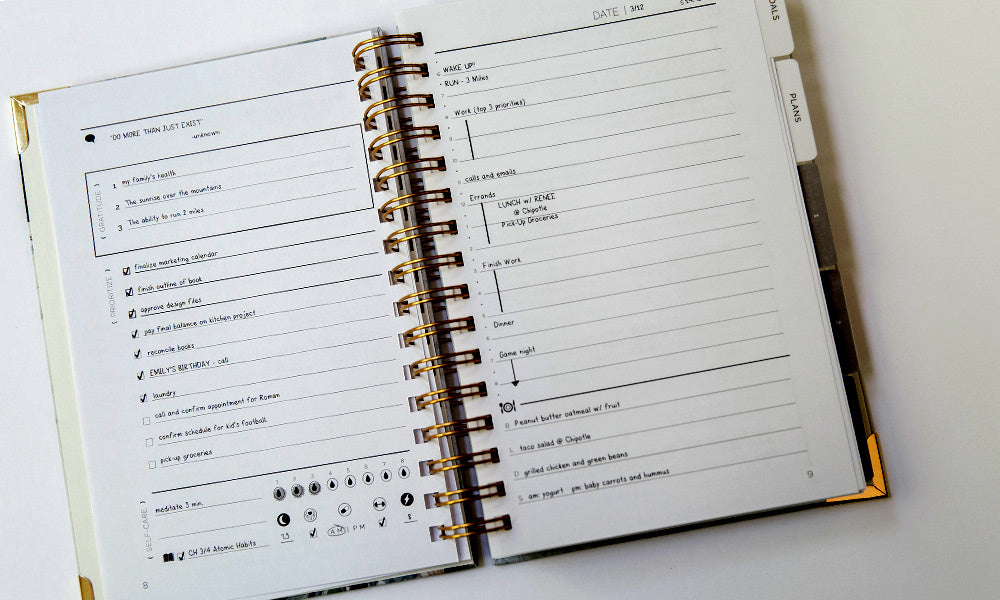 "DO MORE THAN JUST EXIST"
-unknown
GRATITUDE
1 my family's health
2 The sunrise over the mountains
3 The ability to run 2 miles
PRIORITIZE
finalize marketing calendar
finish outline of book
approve design files
pay final balance on kitchen project
reconcile books
EMILY'S BIRTHDAY - call
laundry
call and confirm appointment for Roman
confirm schedule for kid's football
pick-up groceries
SELF-CARE
1 2 3 4 5 6 7 8
meditate 3 min.
7.5
AM | PM
8
CH 3/4 Atomic Habits
8
DATE | 3/12
WAKE UP!
RUN - 3 Miles
Work (top 3 priorities)
calls and emails
Errands
LUNCH w/ RENEE
@ Chipotle
Pick-Up Groceries
Finish Work
Dinner
Game night
B Peanut butter oatmeal w/ fruit
L taco salad @ Chipotle
D grilled chicken and green beans
S am: yogurt pm: baby carrots and hummus
9
PLANS